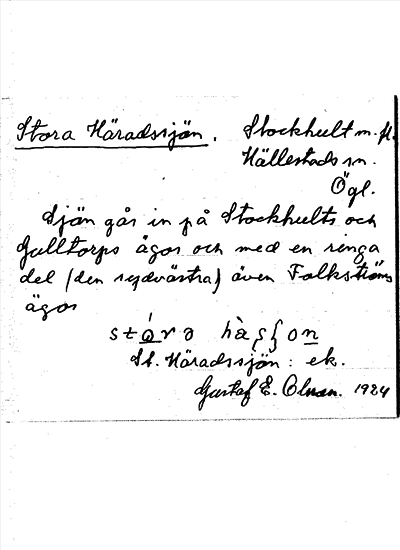 Stora Häradssjön. Stockhult m.fl.
Hällestads sn.
Ögl.
Sjön går in på Stockhults och
Gulltorps ägor och med en ringa
del (den sydvästra) även Folkströms
ägor
St. Häradssjön: ek.
Gustaf E. Olsson. 1924